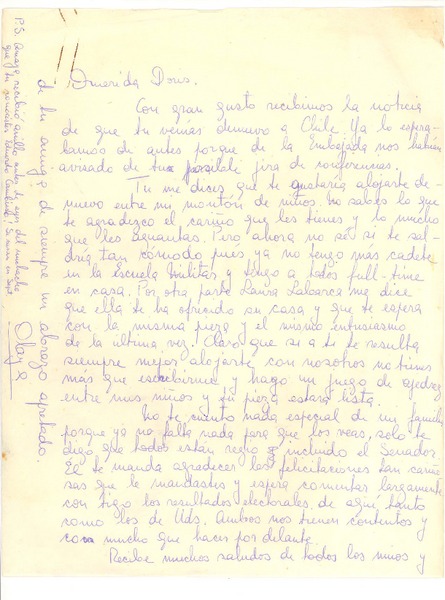 Querida Doris.
Con gran gusto recibimos la noticia
de que tu venías denuevo a Chile. Ya lo esperá-
bamos de antes porque de la Embajada nos habían
avisado de tu posible jira de conferencias.
Tu me dices que te gustaría alojarte de-
nuevo entre mi montón de niños. No sabes lo que
te agradezco el cariño que les tienes y lo mucho
que les aguantas. Pero ahora no sé si te sal-
dría tan cómodo pues, ya no tengo más cadete
en la Escuela Militar y tengo a todos full-time
en casa. Por otra parte Laura Labarca me dice
que ella te ha ofrecido su casa y que te espera
con la misma pieza y el mismo entusiasmo
de la última vez. Claro que si a ti te resulta
siempre mejor alojarte con nosotros no tienes
más que escribirme y hago un juego de ajedrez
entre mis niños y tu pieza estará lista.
No te cuento nada especial de mi familia
porque ya no falta nada para que los veas, solo te
digo que todos están regio incluido el Senador.
El te manda agradecer las felicitaciones tan cariño-
sas que le mandaste y espera comentar largamente
contigo los resultados electorales, de aquí tanto
como los de Uds. Ambos nos tienen contentos y
con mucho que hacer por delante.
Recibe muchos saludos de todos los niños y
de tu amiga de siempre un abrazo apretado.
Olaya
P.S. recibió
que